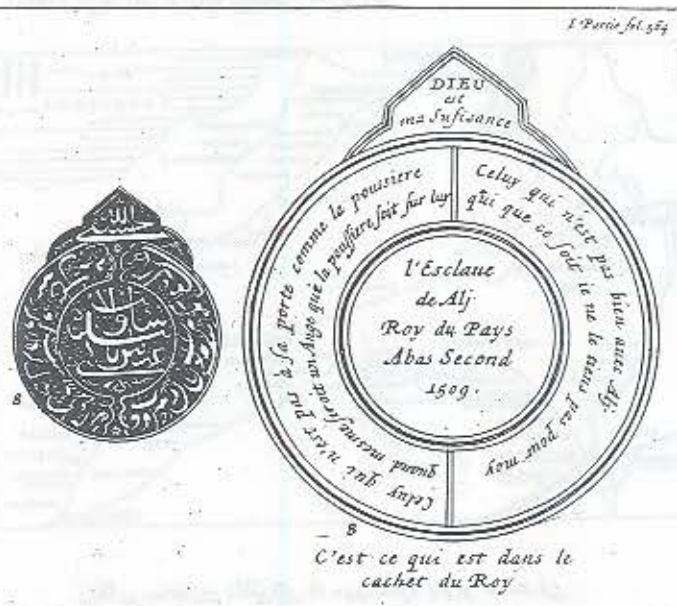 I Partie fol. 384
DIEU
est
ma Sufisance
Celuy qui n'est pas bien avec Alj
qui que ce soit ie ne le tiens pas pour moy
Celuy qui n'est pas à sa porte comme la poussiere
quand mesme seroit un Ange que la poussiere soit sur luy
l'Esclaue
de Alj
Roy du Pays
Abas Second
1509.
حسبي الله
8
8
C'est ce qui est dans le
cachet du Roy